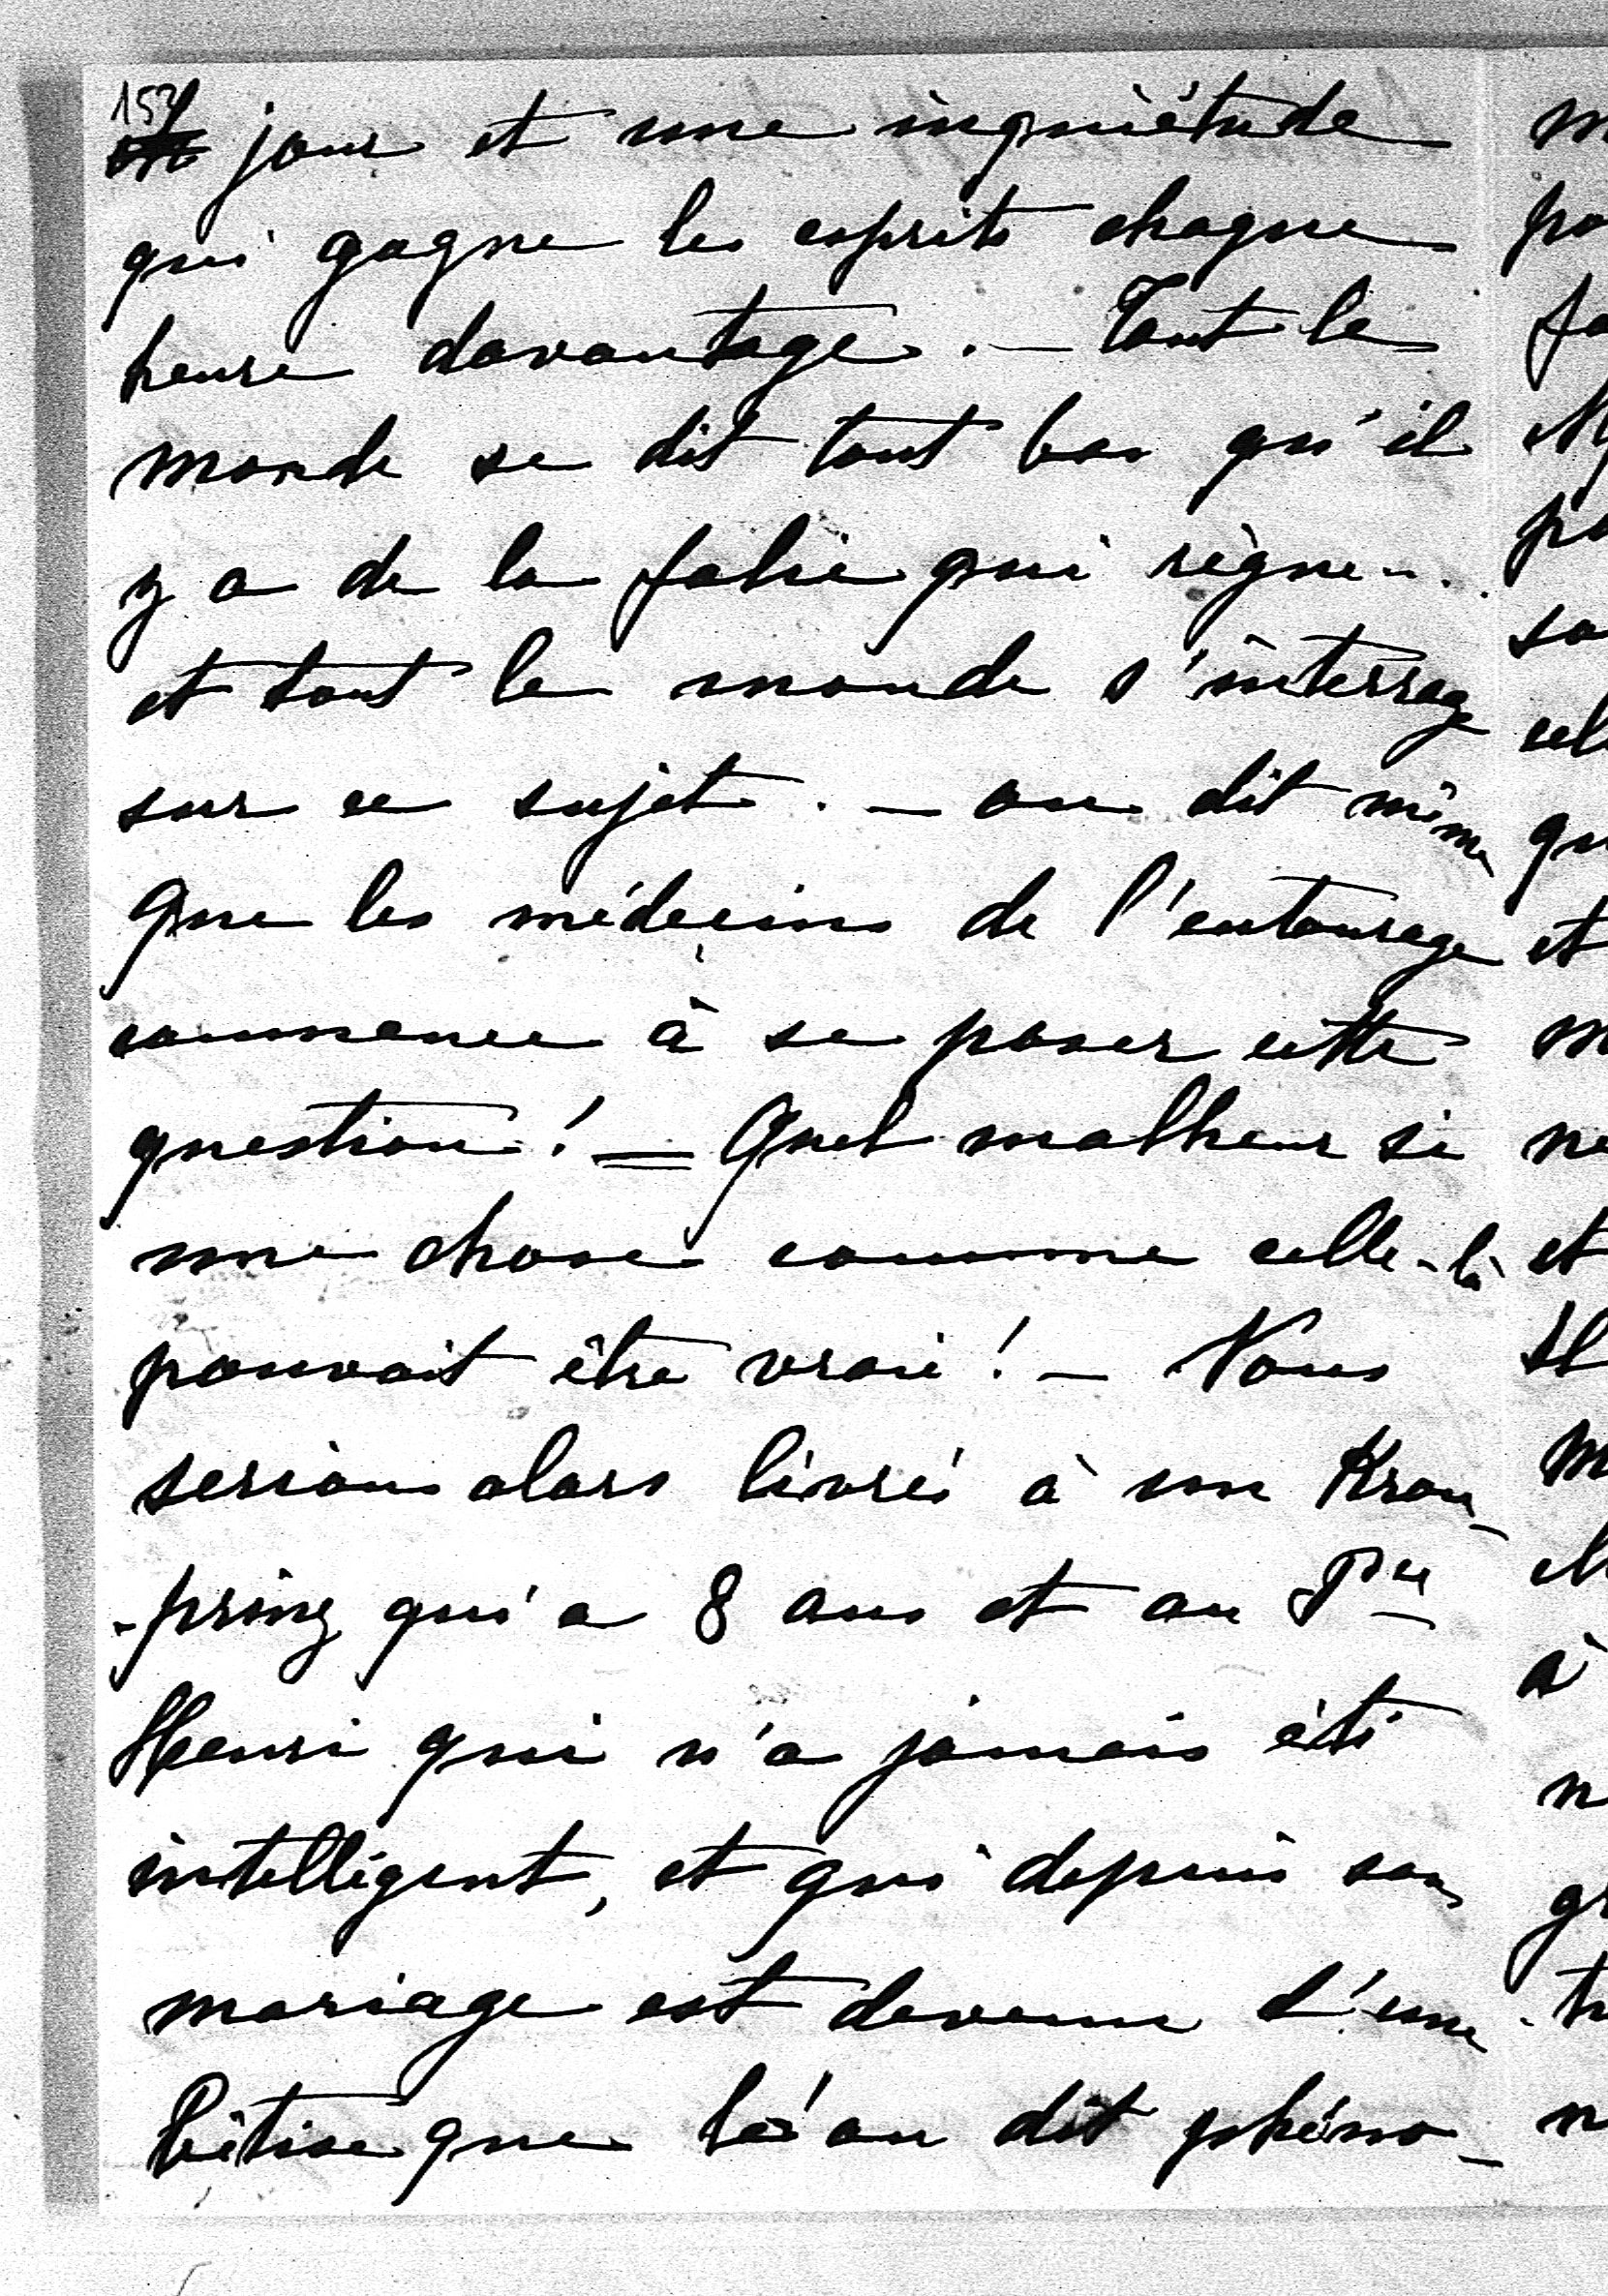 157
jour et une inquiétude
qui gagne les esprits chaque
heure davantage. — Tout le
monde se dit tout bas qu'il
y a de la folie qui règne ...
et tout le monde s'interroge
sur ce sujet. — on dit même
que les médecins de l'entourage
commence à se poser cette
question! — Quel malheur si
une chose comme celle-là
pouvait être vraie! — Nous
serions alors livrés à un Kron-
-prinz qui a 8 ans et au Pce
Henri qui n'a jamais été
intelligent, et qui depuis son
mariage est devenu d'une
bêtise que l'on dit phéno-
m
po
fa
M
po
sa
cel
qu
et
m
ne
et
Il
m
à
n
gr
n